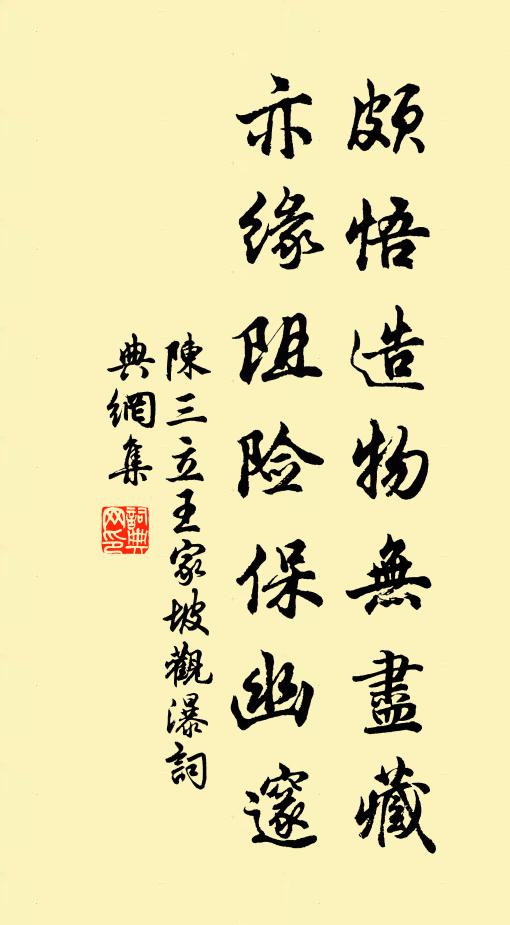 頗悟造物無盡藏
亦缘阻险保幽邃
陳三立王家坡觀瀑詞
典網集
詞典
网印